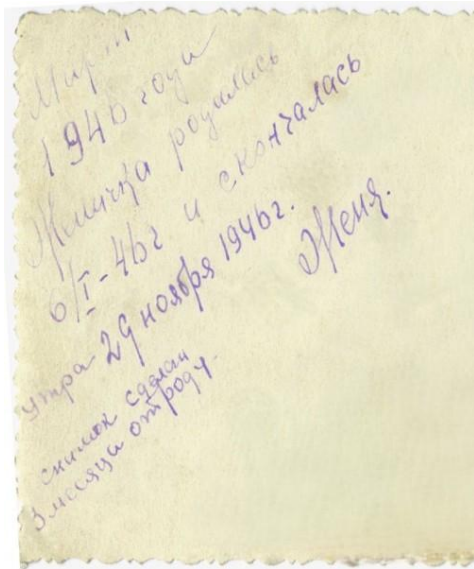 Март
1946 года
родилась
6/I-46г и скончалась
утра 29 ноября 1946г.
Женя.
снимок сделан
3 месяца от роду.